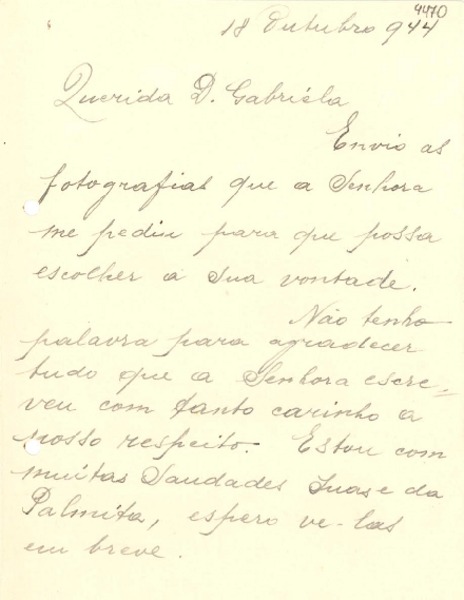 4470
18 Outubro 944
Querida D. Gabriéla
Envio as
fotografias que a Senhora
me pediu para que possa
escolher a sua vontade.
Não tenho
palavra para agradecer
tudo que a Senhora escre-
veu com tanto carinho a
nosso respeito. Estou com
muitas Saudades suas e da
Palmita, espero ve-las
em breve.